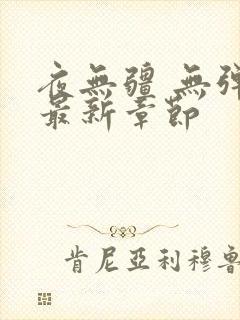 夜無疆 無彈
最新章節
肯尼亞利穆魯